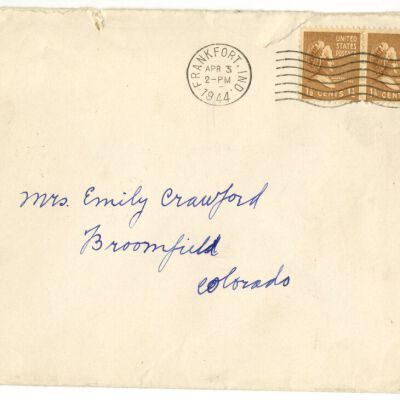 FRANKFORT, IND.
APR 3
2-PM
1944
UNITED
STATES
POSTAGE
1½ CENTS 1½
1½ CENTS
Mrs. Emily Crawford
Broomfield
Colorado